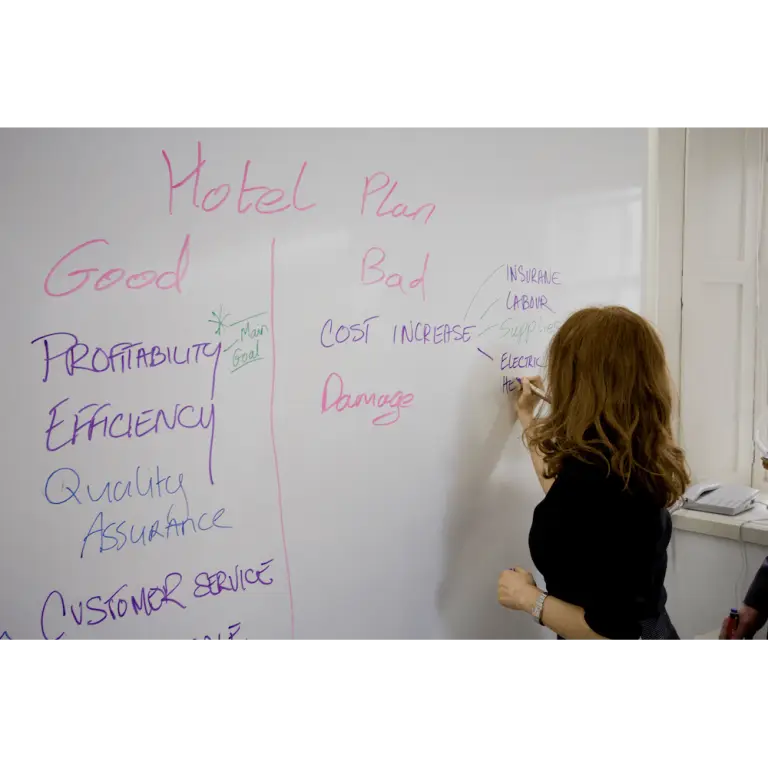 Hotel Plan
Good
Bad
PROFITABILITY
* Main
Goal
EFFICIENCY
Quality
ASSURANCE
CUSTOMER SERVICE
COST INCREASE
INSURANE
LABOUR
Supplies
ELECTRIC
HE
Damage